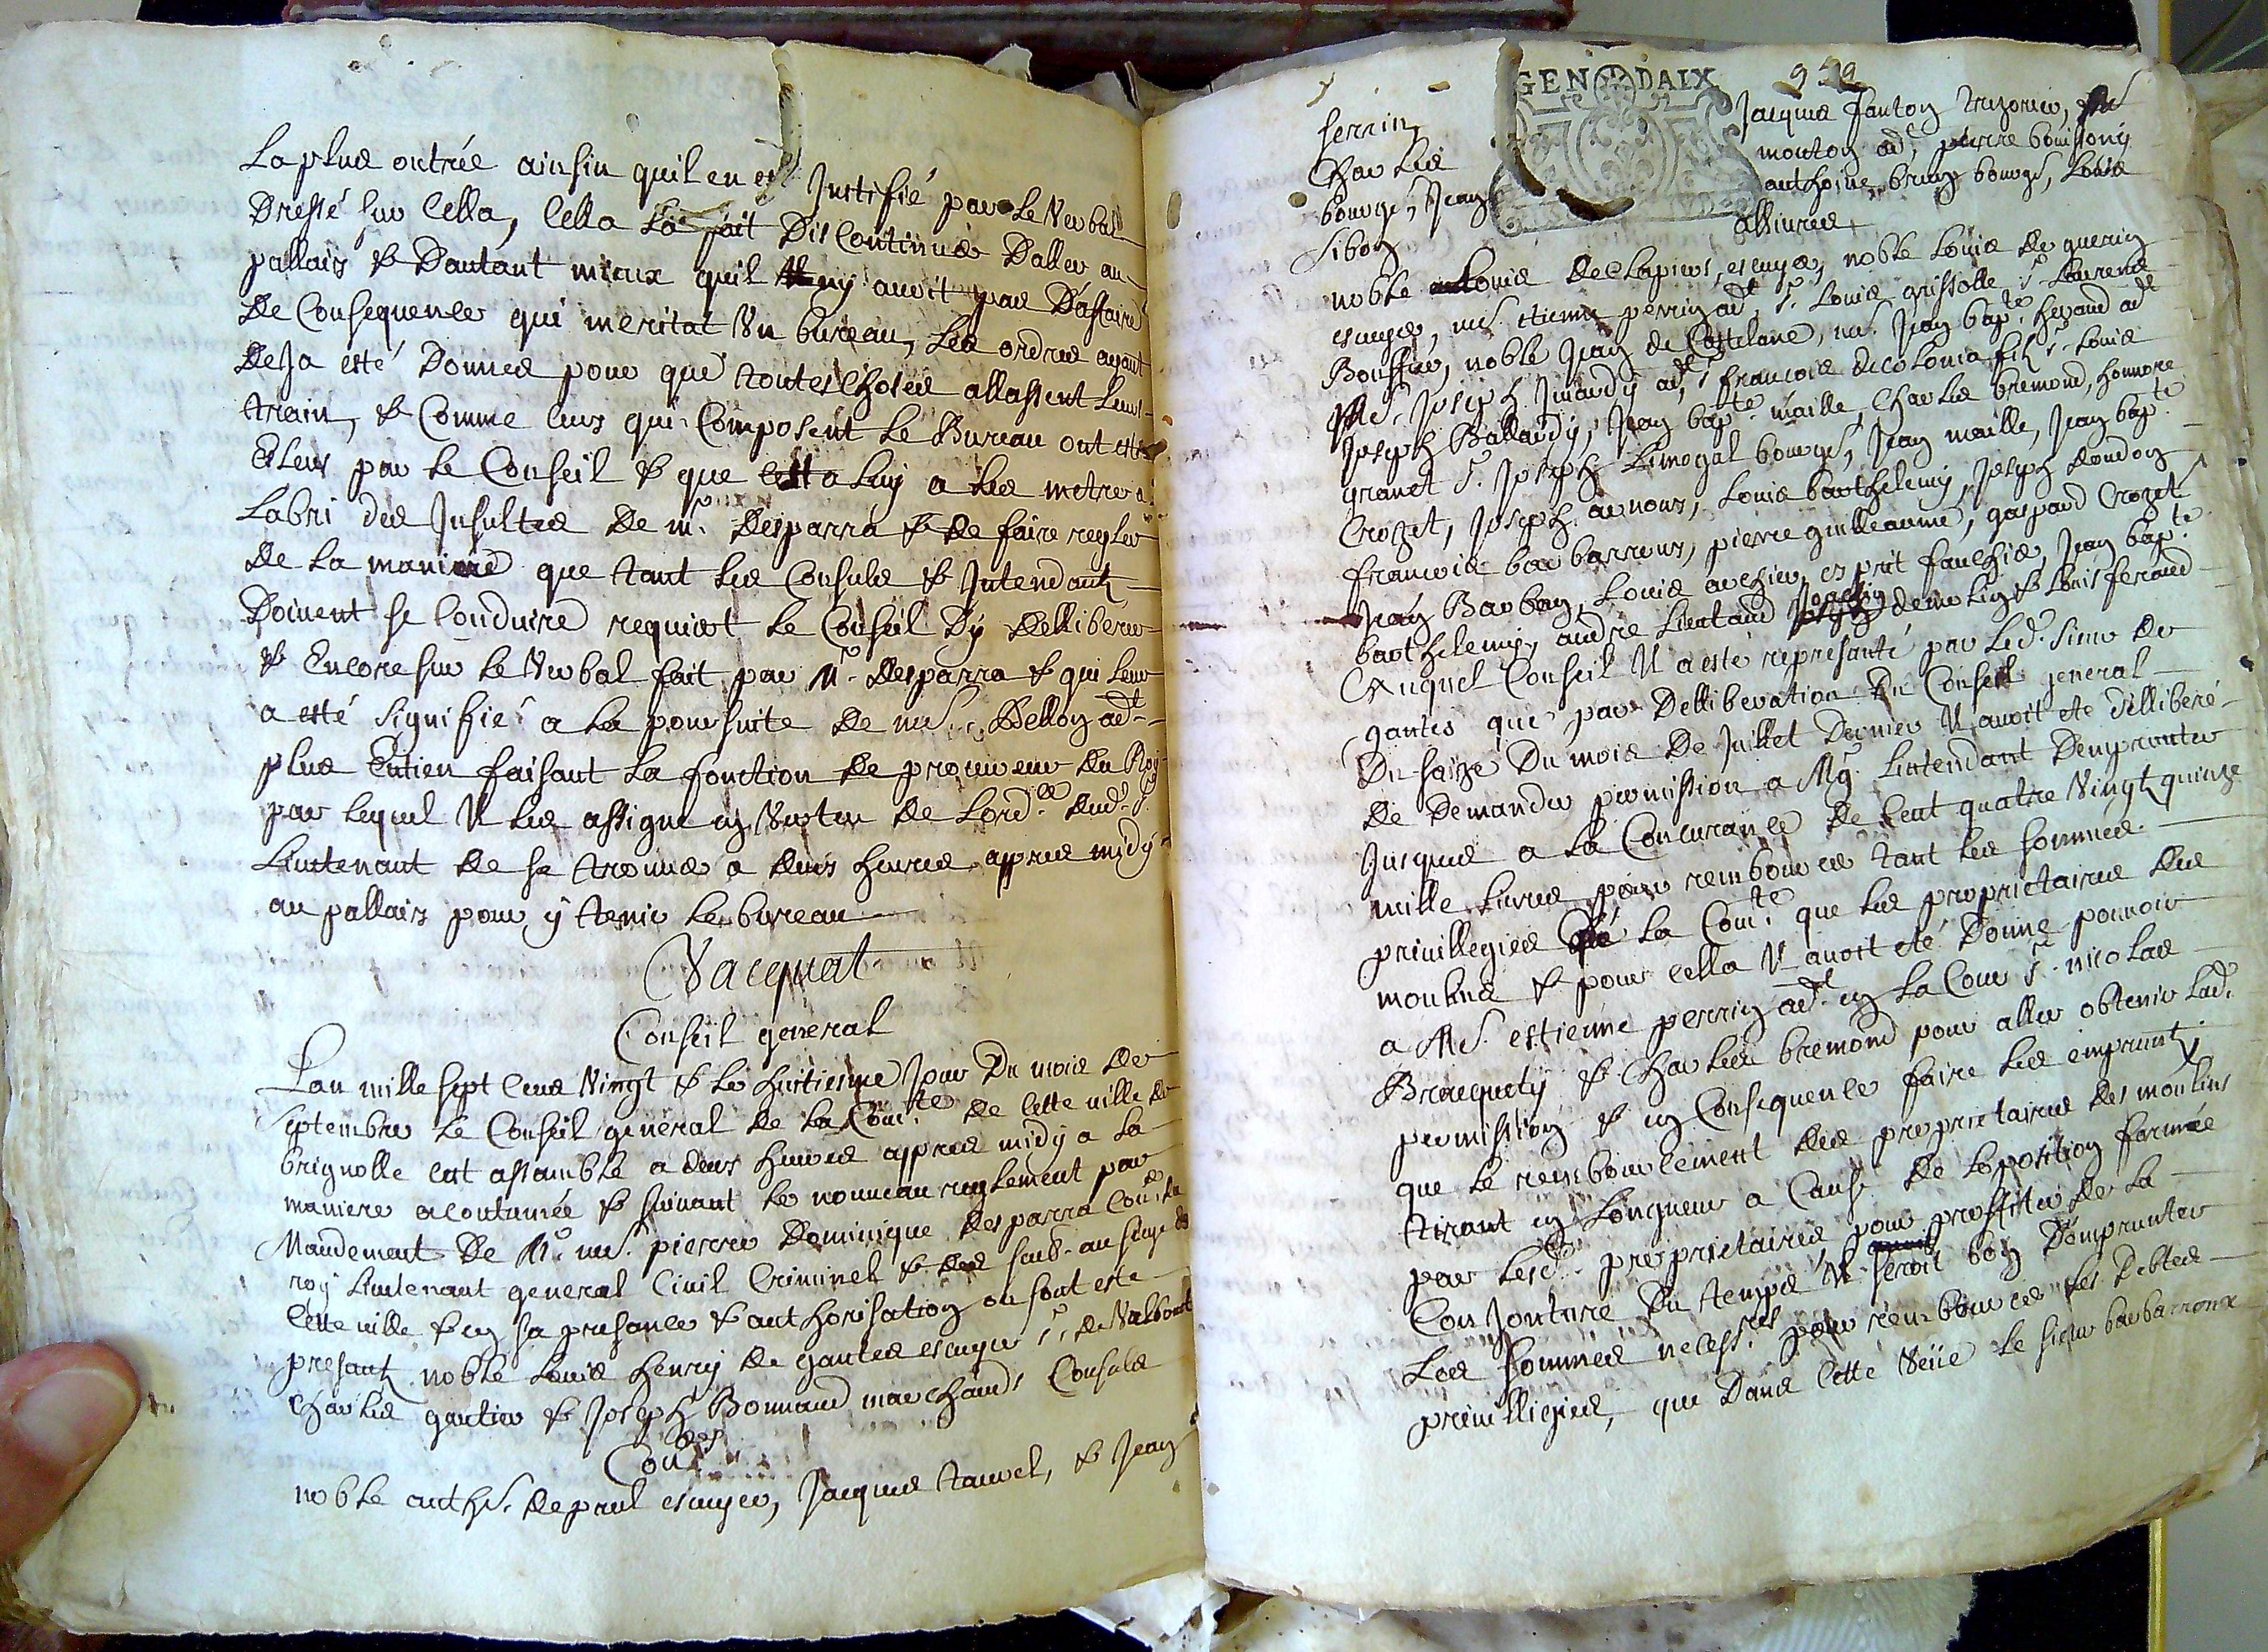 La plus outrée ainsin quil en est Justifié par le Verbal
Dressé sur Cella, Cella la fait Discontinuer Daller au
pallais & Dautant mieux quil ny avoit pas Daffaire
De Consequence qui meritat Un bureau, Les ordres ayant
Deja esté Donnes pour que toutes Choses allassent Leur
train, & Comme ceux qui Composent Le Bureau ont esté
Esleus par le Conseil & que cest a Luy a Les metre a
Labri des Insultes De mr. Desparra & De faire regler
De La maniere que tant Les Consuls & Intendants
Doivent se Conduire requiert Le Conseil Dÿ Delliberer
& Encore sur Le Verbal fait par Mr. Desparra & qui Leur
a esté Signifié a La poursuite De me. Bellon adt.
plus Entien faisant La fonction De procureur Du Roy
par Lequel Il Les assigne en Vertu De Lordce. Dud. Sr.
Lieutenant De se trouver a Deux heures appres midÿ
au pallais pour ÿ tenir Le bureau
Vacquat
Conseil general
Lan mille sept Cens Vingt & Le huitiesme Jour Du mois De
Septembre Le Conseil general de La Comte. De Cette ville De
brignolle cest assamblé a deux heures appres midÿ a La
maniere acoutumée & suivant Le nouveau reglement par
Mandement De Mr. me. pierre Dominique Desparra Coner. du
roÿ Lieutenant general Civil Criminel & Des soub. au siege De
Cette ville & en sa presance & authorisation ou sont este
presants noble Louis henry De gantes escuyer Sr. De Valbonete
Charles gautier & Joseph Bonnaud marchands Consuls
Conrs
noble anthe. De paul escuyer, Jacques tauvel, & Jean
929
GEN DAIX
serrin,
Charles
bourgs, Jean
Sibon
Jacques fanton tresorier, me
mouton adt. pierre bouissonÿ
anthoine brun bourgs, Louis
alliures
noble Louis De Clapiers, escuyer, noble Louis de guerin
escuyer, me. etienne perrin adt. Sr. Louis grissolle Sr. Laurens
Bouffier, noble Jean de Castelane, me. Jean bapte. heraud adt
Me. Joseph Jnaudÿ adt. Sr. francois De Colonia fils Sr. Louis
Joseph Ballardÿ, Jean bapte. maille, Charles bremond, honnore
granet Sr. Joseph Limogal bourgs, Jean maille, Jean bapte.
Crozet, Joseph arnoux, Louis barthelemÿ, Joseph dondon
francois barbarroux, pierre guilleaume, gaspard Crozet
Jean Barban, Louis archier, esprit fauchier, Jean bapte.
barthelemy, andre Lieutaud Joachin demolin & Louis feraud
Auquel Conseil Il a esté represanté par Led. Sieur De
gantes que par Delliberation Du Conseil general
Du saize Du mois De Juillet Dernier Il avoit ete delliberé
De Demander permission a Mgr. Lintendant Demprunter
Jusques a La Concurance De Cent quatre Vingt quinze
mille Livres pour rembourcer tant Les sommes
privillegies que La Comte. que Les proprietaires Des
moulins & pour Cella Il avoit eté Donné pouvoir
a Me. estienne perrin adt. en La Cour Sr. nicolas
Bracquety & Charles bremond pour aller obtenir Lad.
permission & en Consequence faire Les emprunts,
que Le rembourcement Des proprietaires Des moulins
tirant en Longueur a Cause De Loposition formée
par Lesd. proprietaires pour proffiter De La
Conjonture Du temps Il seroit bon Demprunter
Les sommes necessres. pour rembourcer Les Debtes
privilligies, que Dans Cette Veüe Le sieur barbarroux